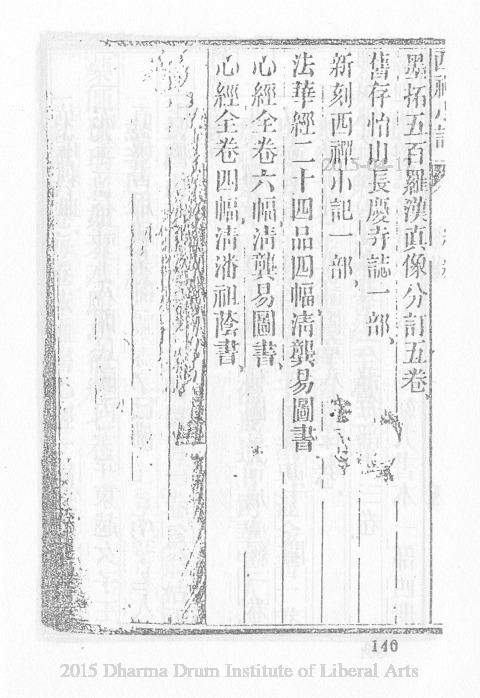 西禪小記
墨拓五百羅漢真像分訂五卷
舊存怡山長慶寺誌一部
新刻西禪小記一部
法華經二十四品四幅清龔易圖書
心經全卷六幅清龔易圖書
心經全卷四幅清潘祖蔭書
2015-04-17
140
2015 Dharma Drum Institute of Liberal Arts